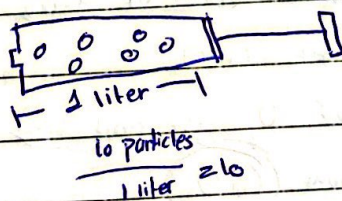 1 liter
10 particles
1 liter = 10